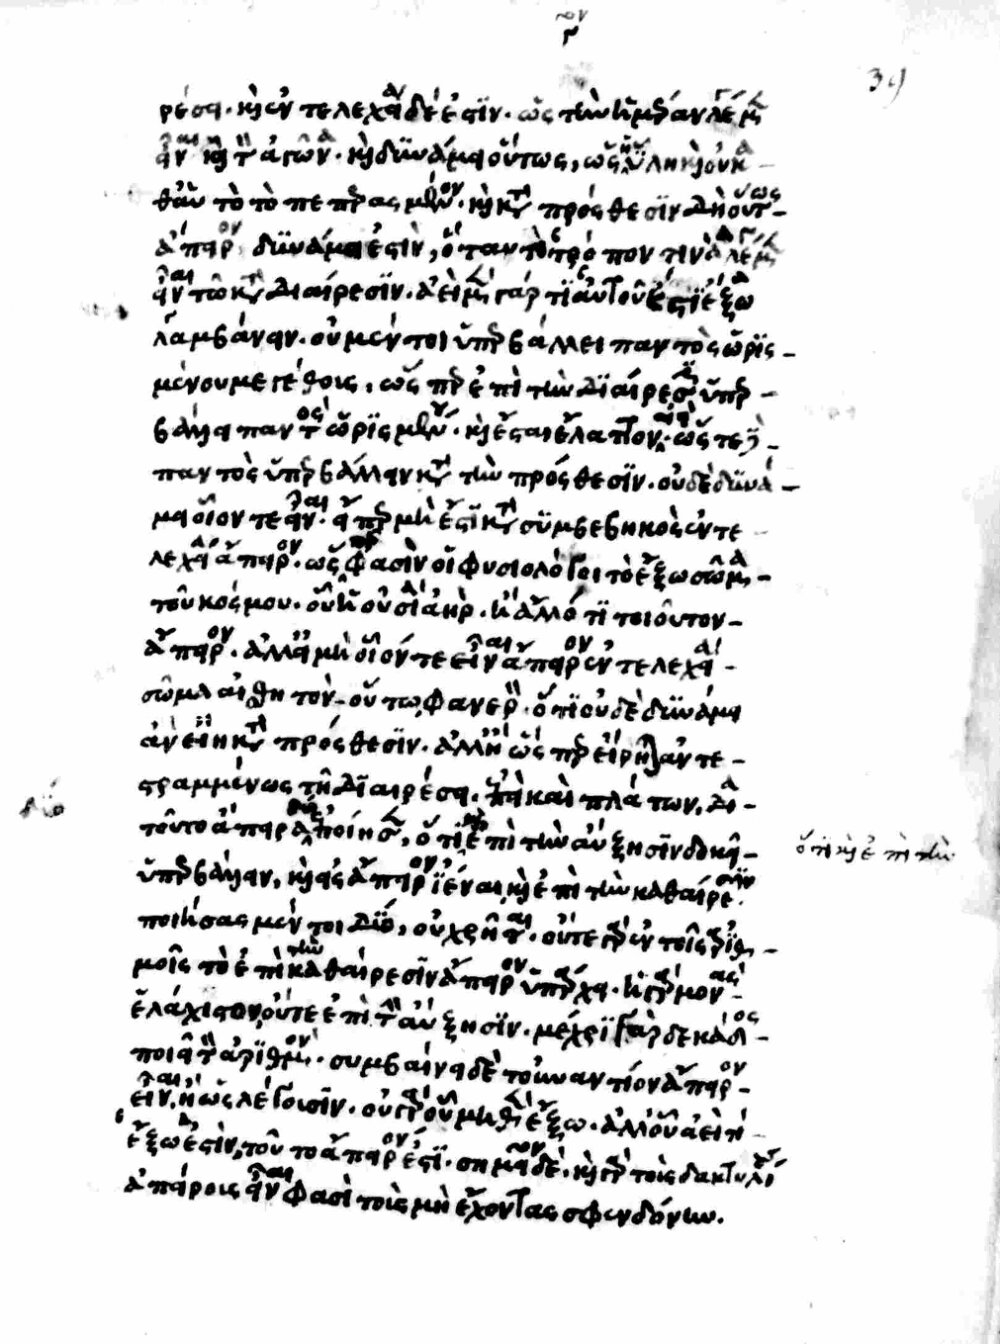 ρέσει· καὶ ἐντελεχεία δέ ἐστιν· ὡς τὴν ἡμέραν λέγομεν
εἶναι καὶ τὸν ἀγῶνα· καὶ δυνάμει οὕτως, ὡς ἡ ὕλη καὶ οὐ κα-
θ' αὑτὸ τὸ πεπερασμένον· καὶ κατὰ πρόσθεσιν δὴ οὕτως
ἄπειρον δυνάμει ἐστίν, ὃ ταυτὸ τρόπον τινὰ λέγομεν
εἶναι τῶ κατὰ διαίρεσιν· ἀεὶ μὲν γάρ τι αὐτοῦ ἔσται ἔξω
λαμβάνειν· οὐ μέντοι ὑπερβάλλει παντὸς ὡρισ-
μένου μεγέθους, ὥσπερ ἐπὶ τὴν διαίρεσιν ὑπερ-
βάλλει παντὸς ὡρισμένου· καὶ ἔσται ἔλαττον· ὥστε
παντὸς ὑπερβάλλειν κατὰ τὴν πρόσθεσιν· οὐδὲ δυνά-
μει οἷόν τε εἶναι· εἴπερ μὴ ἔστι κατὰ συμβεβηκὸς ἐντε
λεχεία ἄπειρον· ὥσπερ φασὶν οἱ φυσιολόγοι τὸ ἔξω σῶμα
τοῦ κόσμου· οὗ ἡ οὐσία ἀὴρ· ἢ ἄλλό τι τοιοῦτον
ἄπειρον· ἀλλ' εἰ μὴ οἷόν τε εἶναι ἄπειρον ἐντελεχεία
σῶμα αἰσθητὸν οὕτω, φανερὸν ὅτι οὐδὲ δυνάμει
ἂν εἴη κατὰ πρόσθεσιν· ἀλλ' ἢ ὥσπερ εἴρηται ἀντε-
στραμμένως τῆ διαιρέσει· ἐπεὶ καὶ πλάτων, διὰ
τοῦτο ἄπειρα δύο ἐποίησεν, ὅτι ἐπὶ τὴν αὔξησιν δοκεῖ
ὅτι καὶ ἐπὶ τὴν
ὑπερβάλλειν, καὶ εἰς ἄπειρον ἰέναι καὶ ἐπὶ τὴν καθαίρεσιν·
ποιήσας μέντοι δύο, οὐ χρῆται· οὔτε γὰρ ἐν τοῖς ἀριθ-
μοῖς τὸ ἐπὶ τὴν καθαίρεσιν ἄπειρον ὑπάρχει· ἡ γὰρ μονὰς
ἐλάχιστον, οὔτε ἐπὶ τὴν αὔξησιν· μέχρι γὰρ δεκάδος
ποιεῖ τὸν ἀριθμόν· συμβαίνει δὲ τοὐναντίον ἄπειρον
εἶναι, ἢ ὡς λέγουσιν· οὐ γὰρ οὗ μηθὲν ἔξω· ἀλλ' οὗ ἀεί τι
ἔξω ἐστίν, τοῦτο ἄπειρόν ἐστι· σημεῖον δέ· καὶ γὰρ τοὺς δακτυλίους
ἀπείρους εἶναι φασὶ τοὺς μὴ ἔχοντας σφενδόνην.